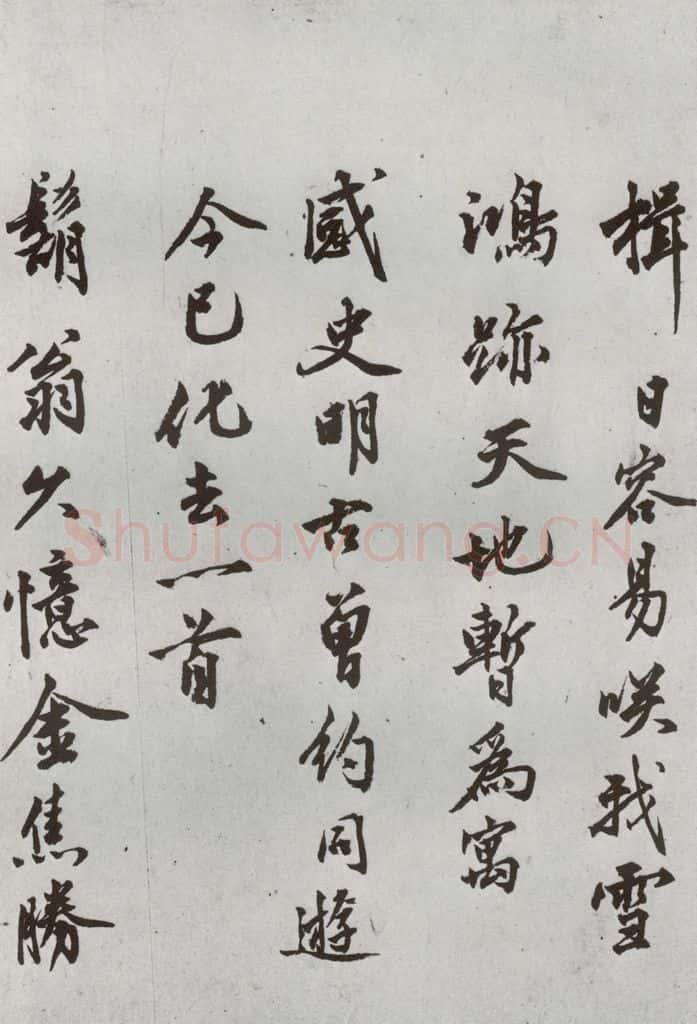 楫日容易咲我雪
鴻跡天地暫為寓
感史明古曾約同遊
今已化去一首
鬍翁久憶金焦勝
Shufawang.CN